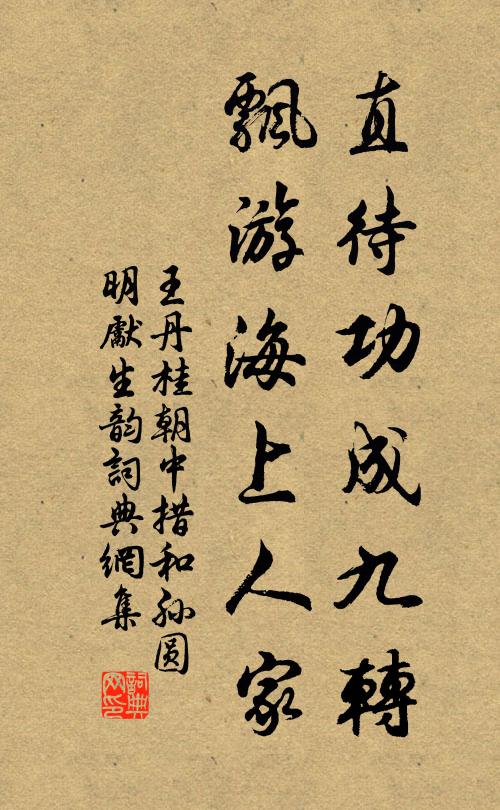 直待功成九轉
飄游海上人家
王丹桂朝中措和孙圆
明獻生韵詞典網集
詞典网印